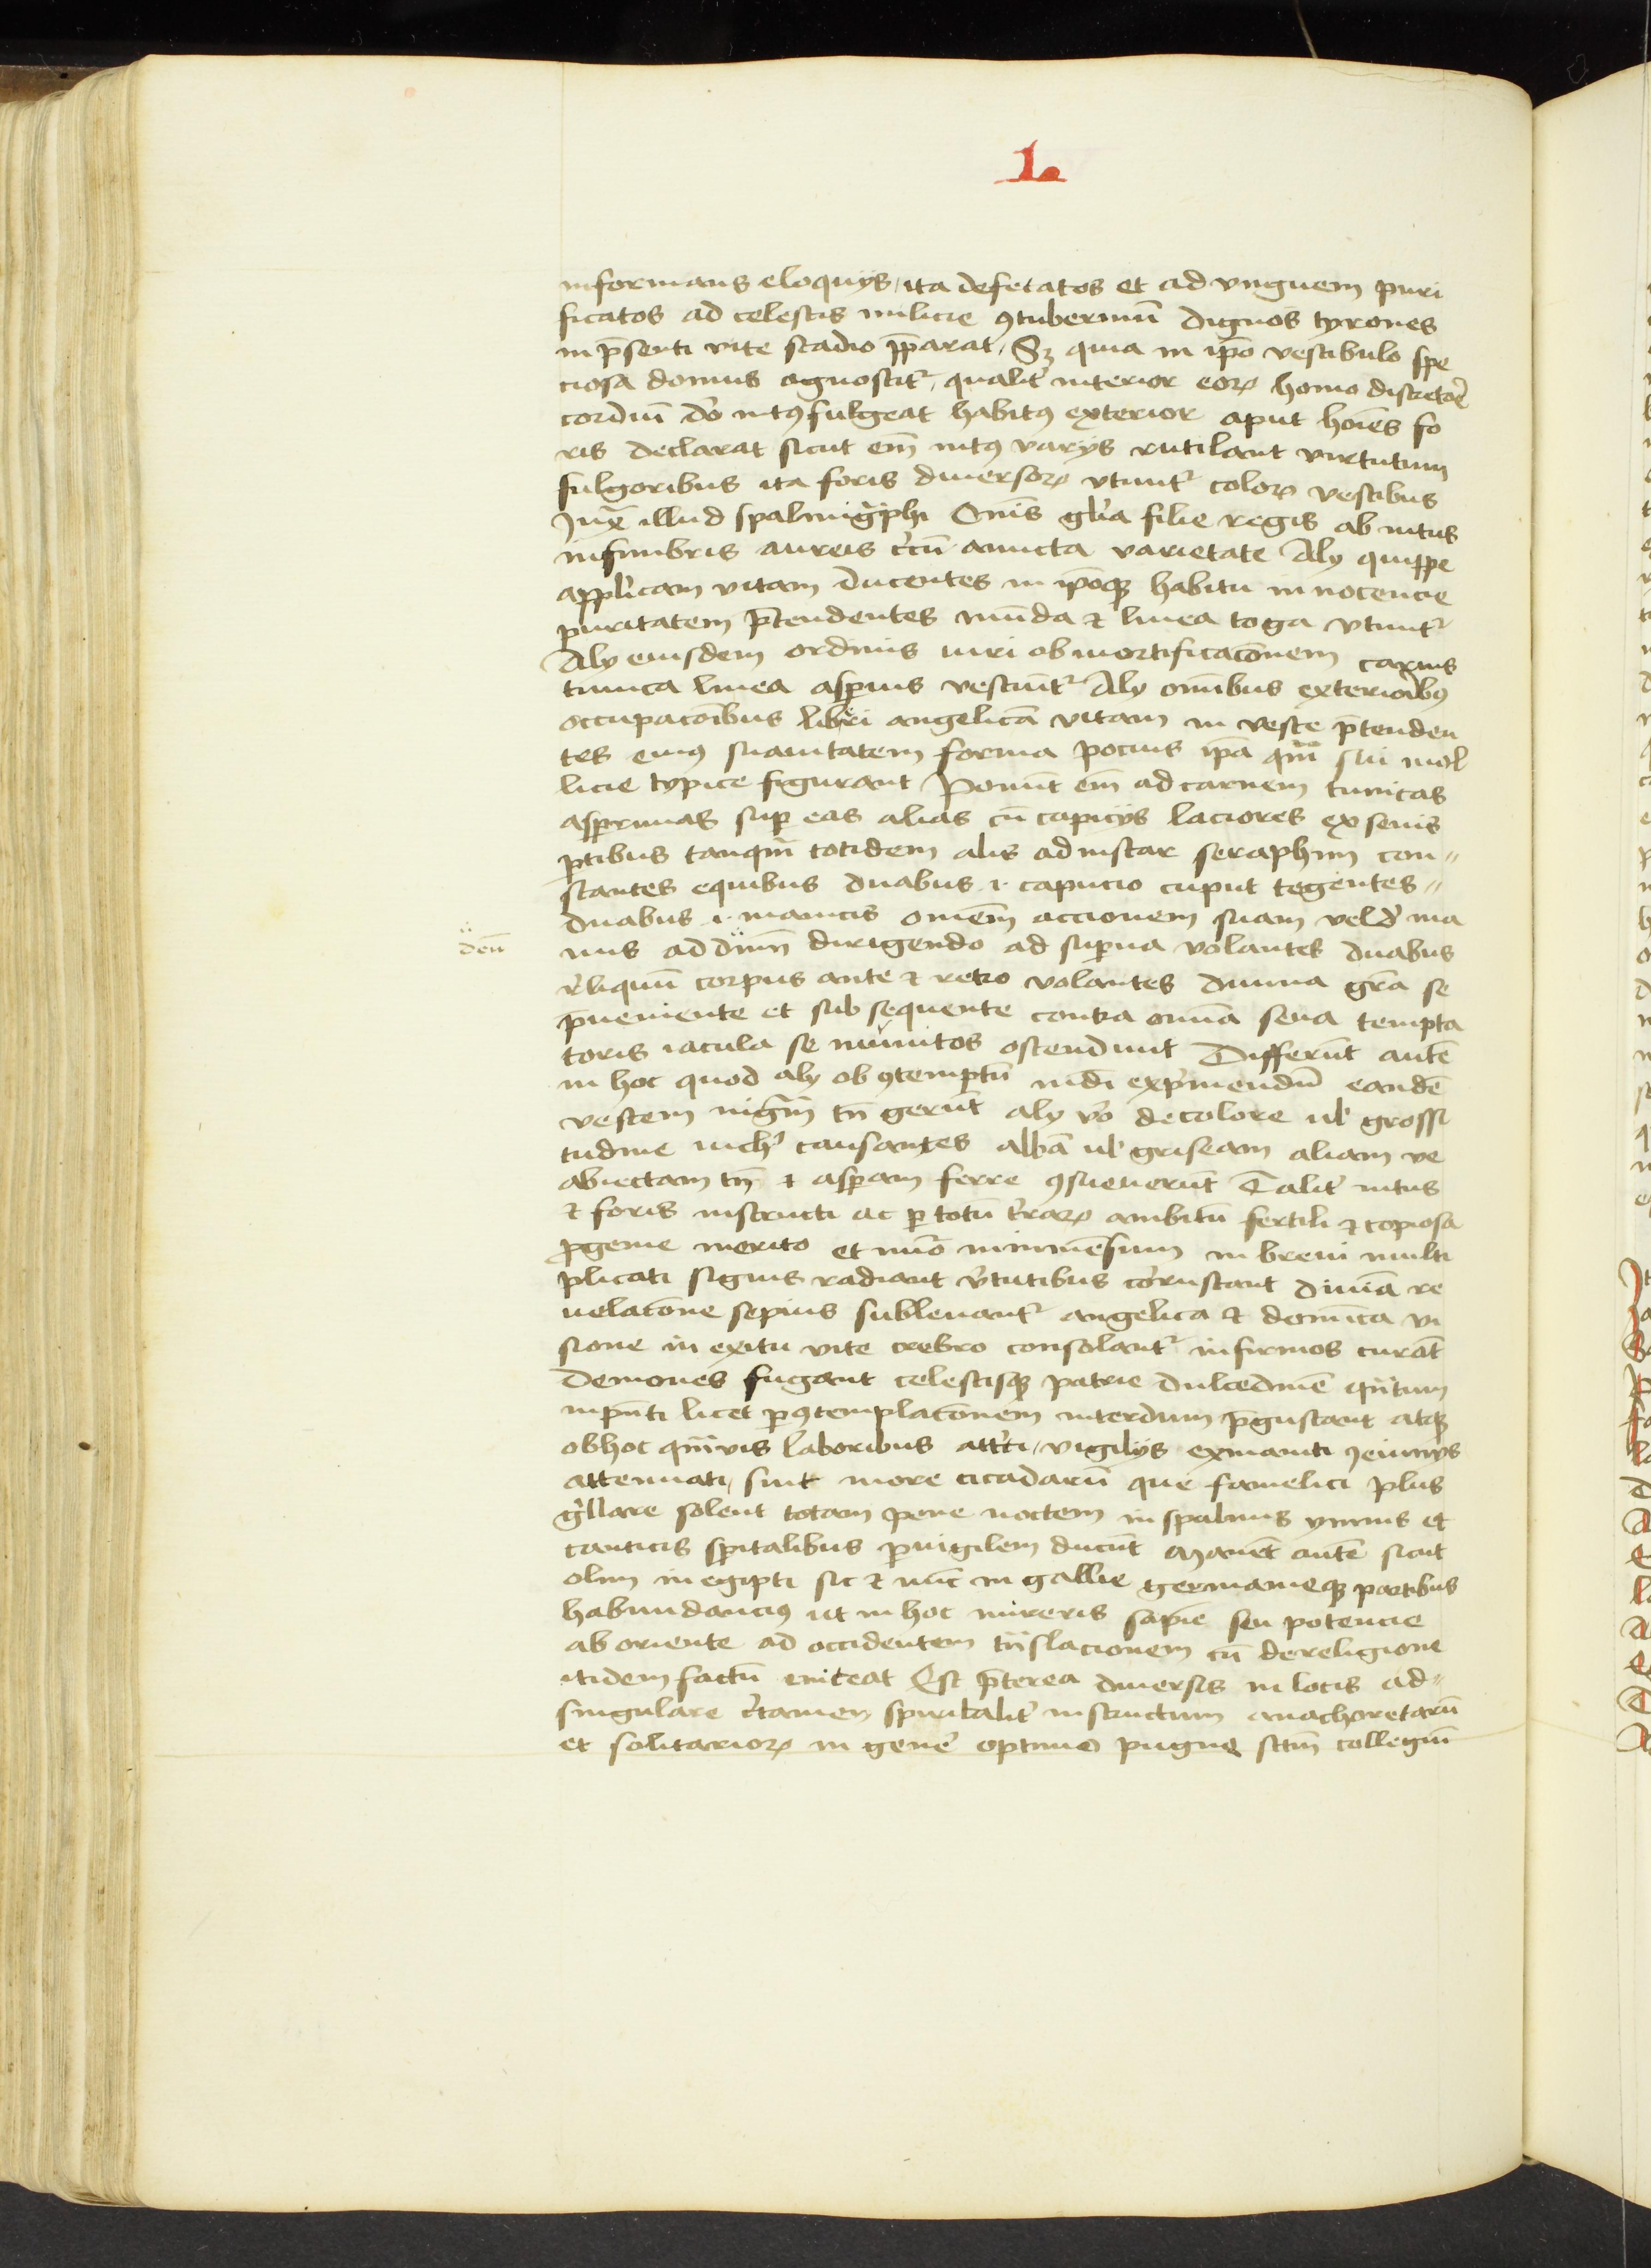 1.
informans eloquijs, ita defecatos et ad vnguem puri
ficatos ad celestis milicie ꝯtuberniū dignos tyrones
in p̄senti vite stadio p̄parat, Sꝫ quia in ip̄o vestibulo spe
ciosa domus agnoscit᷑, qualit᷑ interior eoꝝ homo
cordiū dō intꝰ fulgeat habitꝰ exterior aput hoīes fo
ris declarat sicut em̄ intꝰ varijs rutilant virtutum
fulgoribus ita foris diuersoꝝ vtunt᷑ coloꝝ vestibus
Iux̄ illud spalmigͣphi Om̄is gl̓ia filie regis ab intus
in fimbris aureis c̓cū amicta varietate Alij quippe
appl̓icam vitam ducentes in ip̄oqꝫ habitu in nocencie
puritatem p̄tendentes mūda ⁊ linea toga vtunt᷑
Alij eiusdem ordinis viri ob mortificac̄onem carnis
tunica linea asꝑius vestiūt᷑ Alij om̄ibus exteriorībꝰ
occupac̄onibus liberi angelicā vitam in veste p̄tenden
tes eiuꝰ suauitatem forma pocius ip̄a qͣm̄ sui mol
licie typice figurant Ponūt em̄ ad carnem tunicas
asꝑrimas suꝑ eas alias cū capicijs laciores ex senis
ꝑtibus tanqͣm̄ totidem alis ad instar seraphim con〃
stantes equibus duabus .i. capucio caput tegentes〃
duabus .i. manicis om̄em̄ accionem suam velud ma
nus ad dīnū dirigendo ad suꝑna volantes duabus
dēū
r̓liquū corpus ante ⁊ retro volantes diuina gr̄a se
p̄ueniente et sub sequente contra om̄ia seua tempta
toris iacula se munitos ostendunt Differūt autē
in hoc quod alij ob ꝯtemptū mūdi exp̓mendū eandē
vestem nigͣm̄ tn̄ gerūt alij v̓o de colore ul̓ grossi
tudine nich̓ causantes albā ul̓ griseam aliam ve
abiectam tn̄ ⁊ asꝑam ferre ꝯsueuerūt Talit᷑ intus
⁊ foris instructi ac ꝑ totū t̓raꝝ ambitū fertili ⁊ copiosa
ꝓgenie merito et nūo inmensum in breui multi
plicati signis radiant v̓tutibus coruscant diuīa re
uelac̄one sepius subleuant᷑ angelica ⁊ domīca vi
sione in exitu vite crebro consolant᷑ infirmos curāt
demones fugant celestisqꝫ patrie dulcedinē qn̄tum
inpn̄ti licet ꝑ ꝯtemplac̄onem interdum p̄gustant atqꝫ
ob hoc qͣm̄vis laboribus att̓ti, vigilijs exinaniti Ieiunijs
attenuati, sint more cicadarū que famelici plus
g̓llare solent totam pene noctem in spalmis ymnis et
canticis spīritalibus ꝑuigilem ducūt Manēt autē sicut
olim in egipti sic ⁊ nūc in gallie germanieqꝫ partibus
habundanciꝰ ut in hoc mireris sapīe seu potencie
ab oriente ad occidentem tn̄slacionem cū de religione
itidem factū eniteat Est p̄terea diuersis in locis ad〃
singulare c̓tamen spiritalit᷑ instructum anachoretarū
et solitarioꝝ in gen̓e optimo pugne sctm̄ collegiū